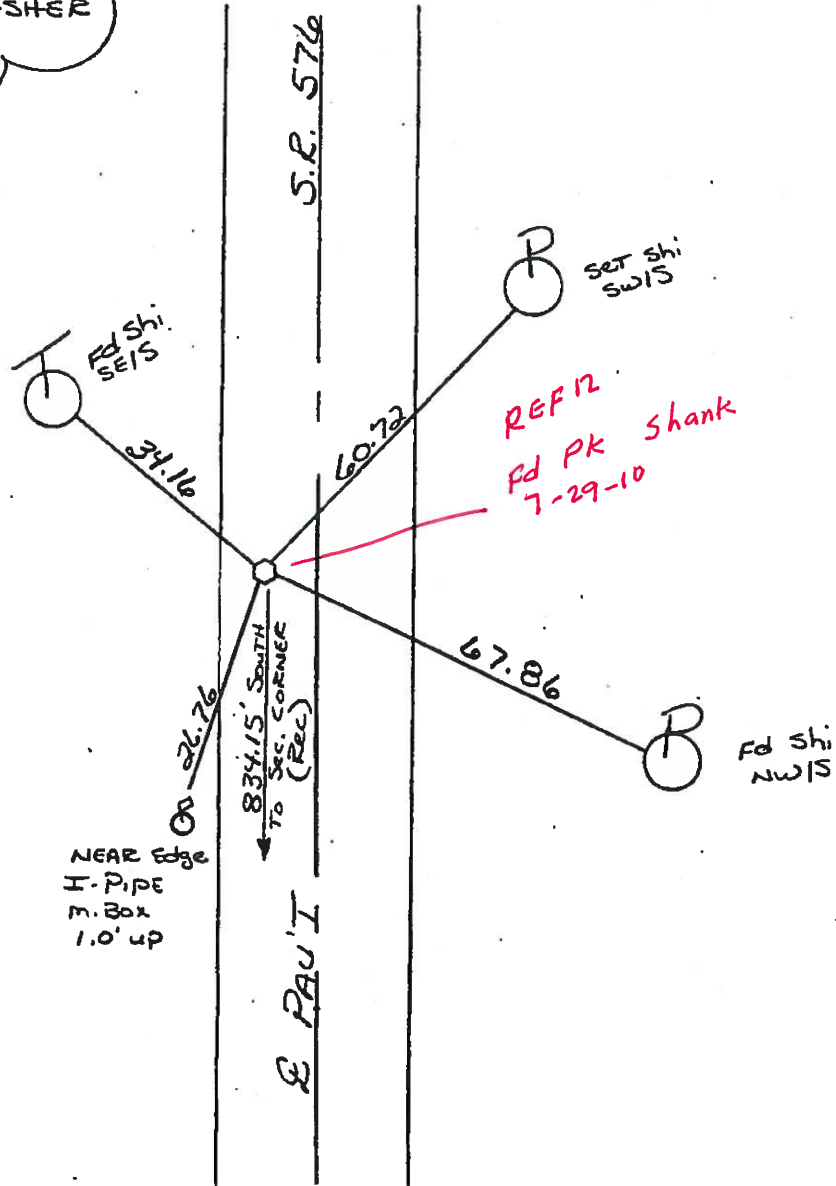 SHER
S.R. 576
Set Shi
SW/S
Fd Shi.
SE/S
REF 12
Fd PK Shank
7-29-10
34.16
60.72
67.86
26.76
834.15' South
To Sec. Corner
(Rec)
Fd Shi
NW/S
NEAR Edge
I-PIPE
M. Box
1.0' up
℄ PAV'T